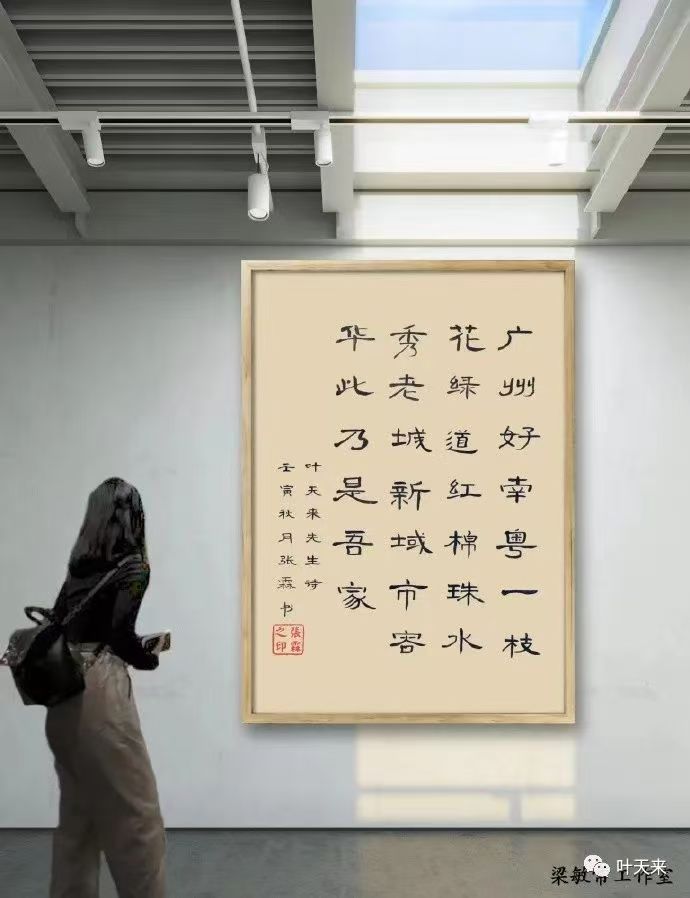 广州好南粤一枝
花绿道红棉珠水
秀老城新域市容
华此乃是吾家
叶天来先生诗
壬寅秋月张霖书
張霖
之印
梁敏 工作室
叶天来